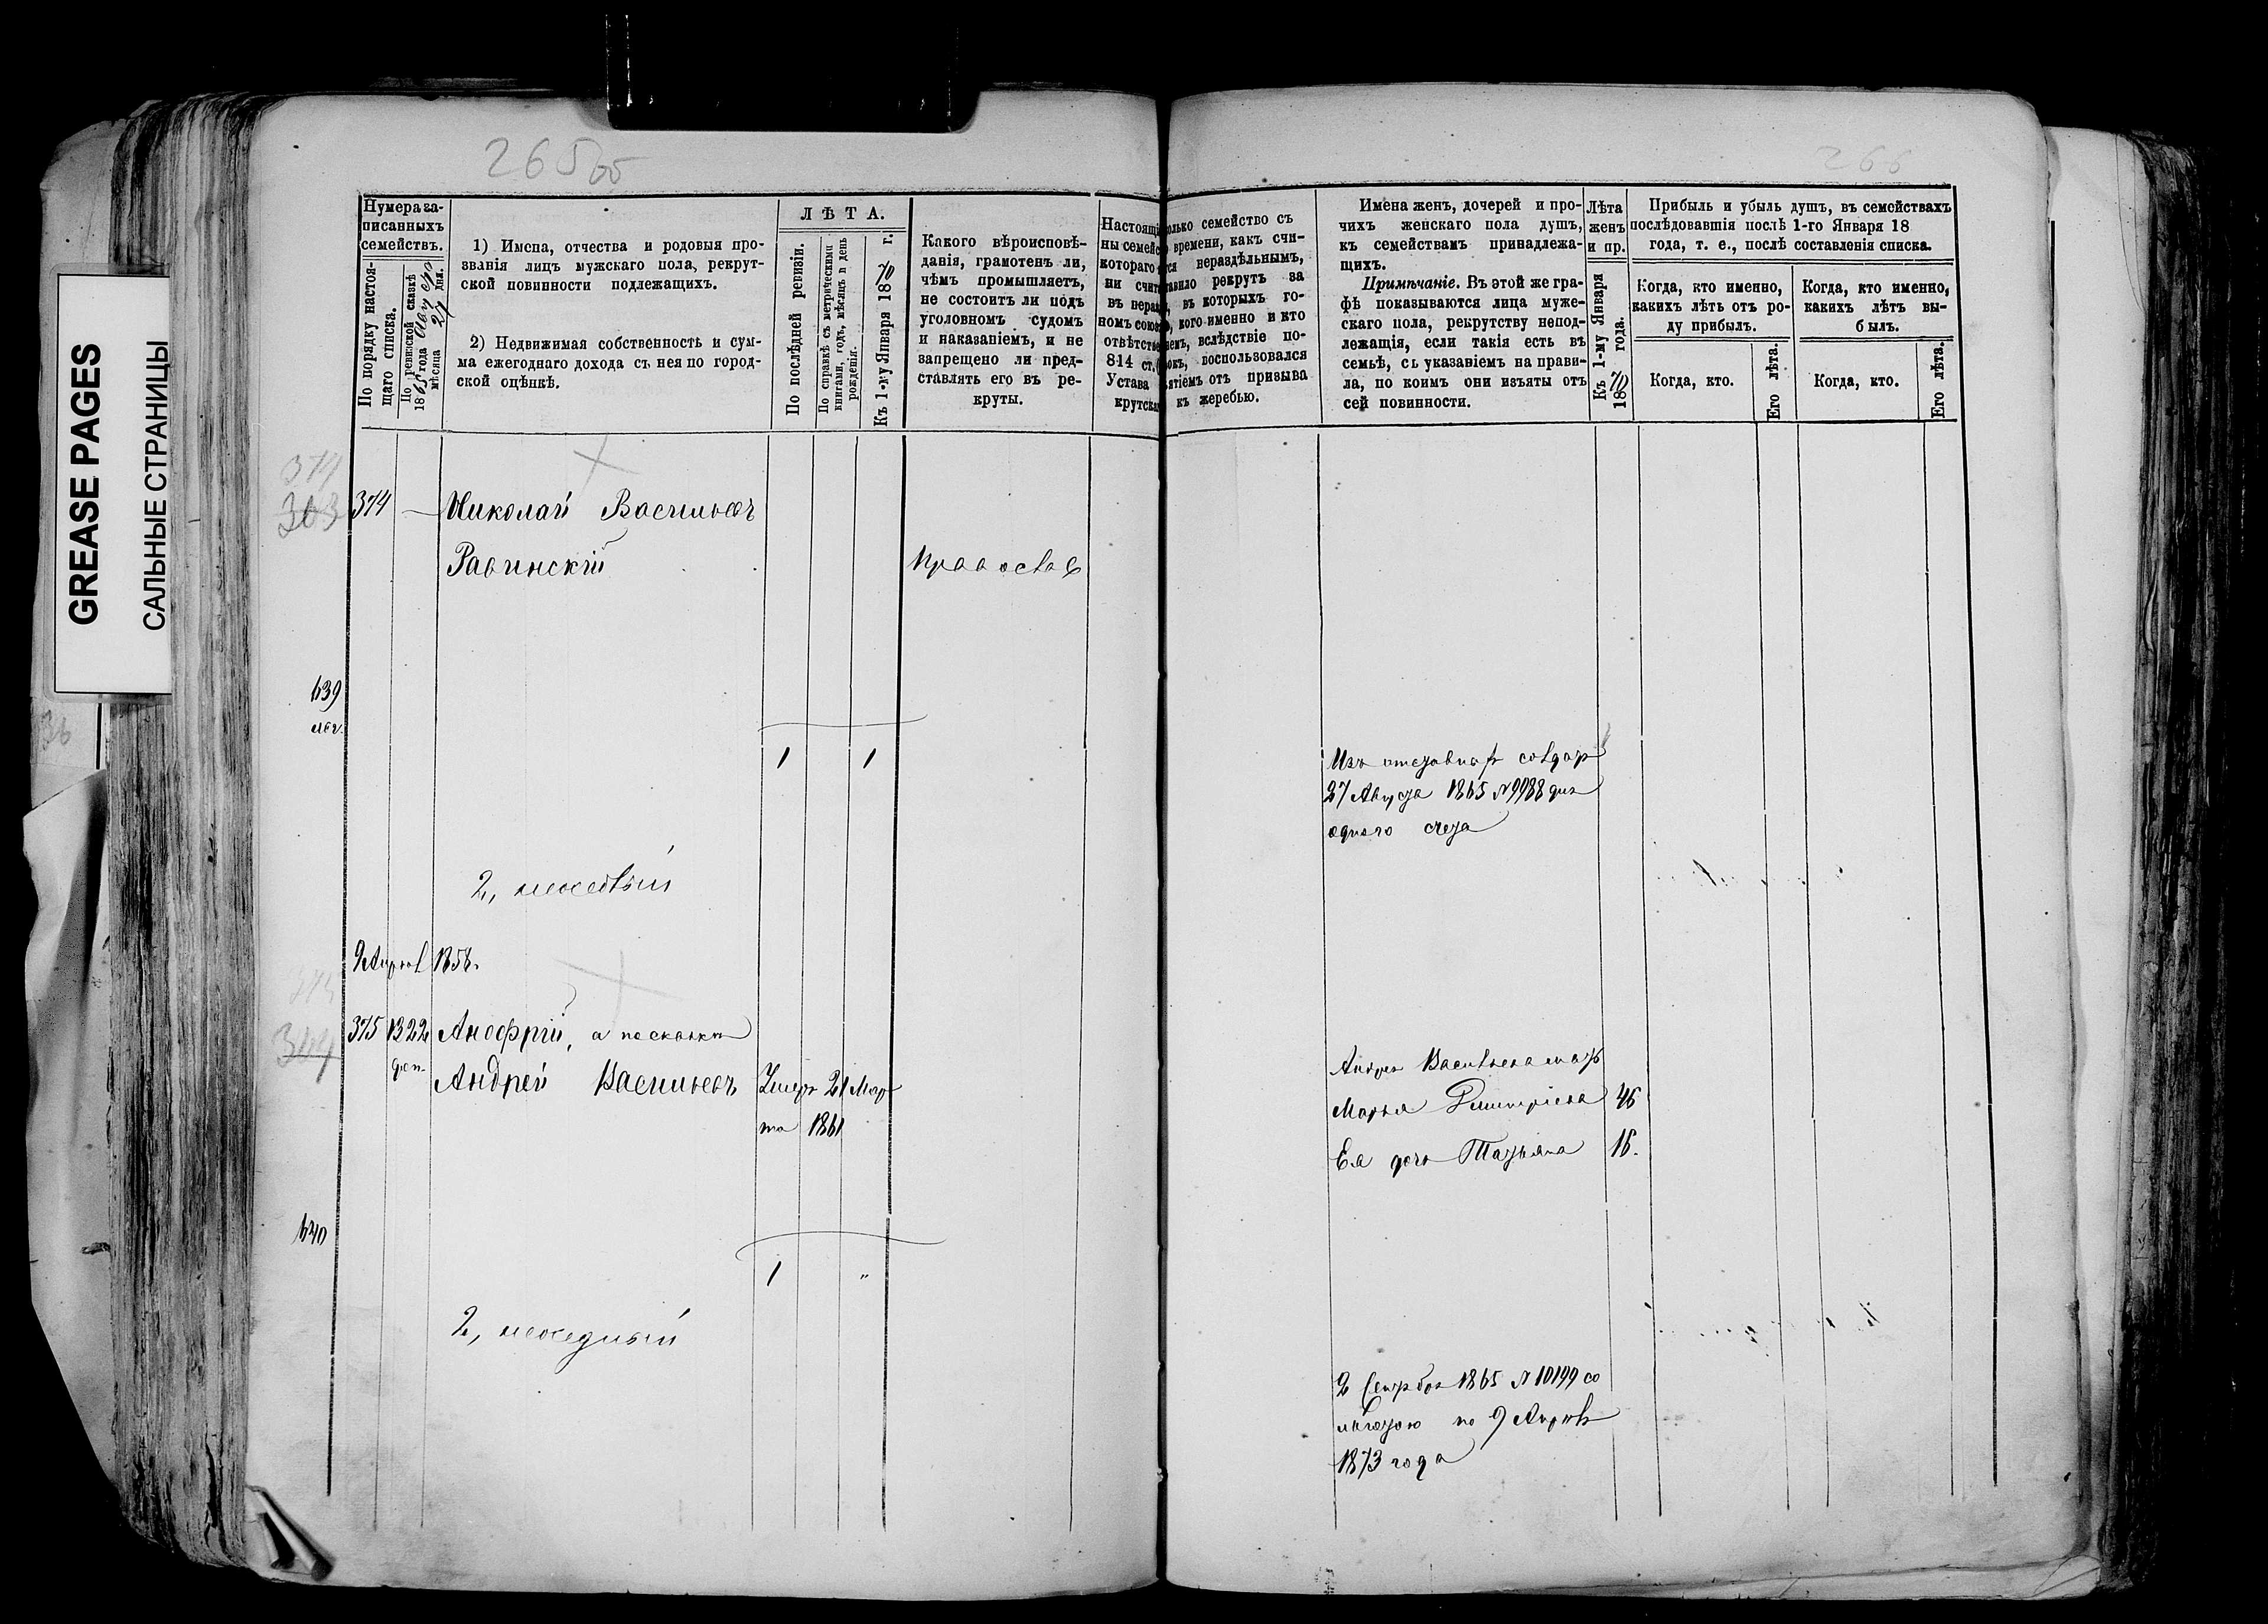 GREASE PAGES
САЛЬНЫЕ СТРАНИЦЫ
265 об
266
Нумера за-
писанныхъ
семействъ.
По порядку настоя-
щаго списка.
По ревизской сказкѣ
1865 года Августа
мѣсяца 27 дня.
1) Имена, отчества и родовыя про-
званія лицъ мужскаго пола, рекрут-
ской повинности подлежащихъ.
2) Недвижимая собственность и сум-
ма ежегоднаго дохода съ нея по город-
ской оцѣнкѣ.
ЛѢТА.
По послѣдней ревизіи.
По справкѣ съ метрическими
книгами, годъ, мѣсяцъ и день
рожденія.
Къ 1-му Января 1870 г.
Какого вѣроисповѣ-
данія, грамотенъ ли,
чѣмъ промышляетъ,
не состоитъ ли подъ
уголовномъ судомъ
и наказаніемъ, и не
запрещено ли пред-
ставлять его въ ре-
круты.
Настоящі
ны семейс
котораго
ни счит
въ нераз
номъ союз
отвѣтстве
814 ст.
Устава
крутска
олько семейство съ
о времени, какъ счи-
тся нераздѣльнымъ,
тавило рекрутъ за
, въ которыхъ го-
, кого именно и кто
немъ, вслѣдствіе по-
воспользовался
ятіемъ отъ призыва
къ жеребью.
Имена женъ, дочерей и про-
чихъ женскаго пола душъ,
къ семействамъ принадлежа-
щихъ.
Примѣчаніе. Въ этой же гра-
фѣ показываются лица муже-
скаго пола, рекрутству непод-
лежащія, если такія есть въ
семьѣ, съ указаніемъ на прави-
ла, по коимъ они изъяты отъ
сей повинности.
Лѣта
женъ
и пр.
Къ 1-му Января
1870 года.
Прибыль и убыль душъ, въ семействахъ
послѣдовавшія послѣ 1-го Января 18
года, т. е., послѣ составленія списка.
Когда, кто именно,
какихъ лѣтъ отъ ро-
ду прибылъ.
Когда, кто именно,
какихъ лѣтъ вы-
былъ.
Когда, кто.
Его лѣта.
Когда, кто.
Его лѣта.
374
303
374 — Николай Васильевъ
Равинскій
Православ
639
1 1
Изъ отставных солдат
27 Августа 1865 № 9988 для
одного счета
2,
9 Апрел 1858.
375 1322 Анофрій, а по сказкѣ
Андрей Васильевъ Умеръ 21 Мар
та 1861
Андрея Васильева
Марья Дмитріева 46
Ея дочь Татьяна 16.
640
1 "
2,
2 Сентября 1865 № 10199 со
льготою по 9 Апрѣл
1873 года